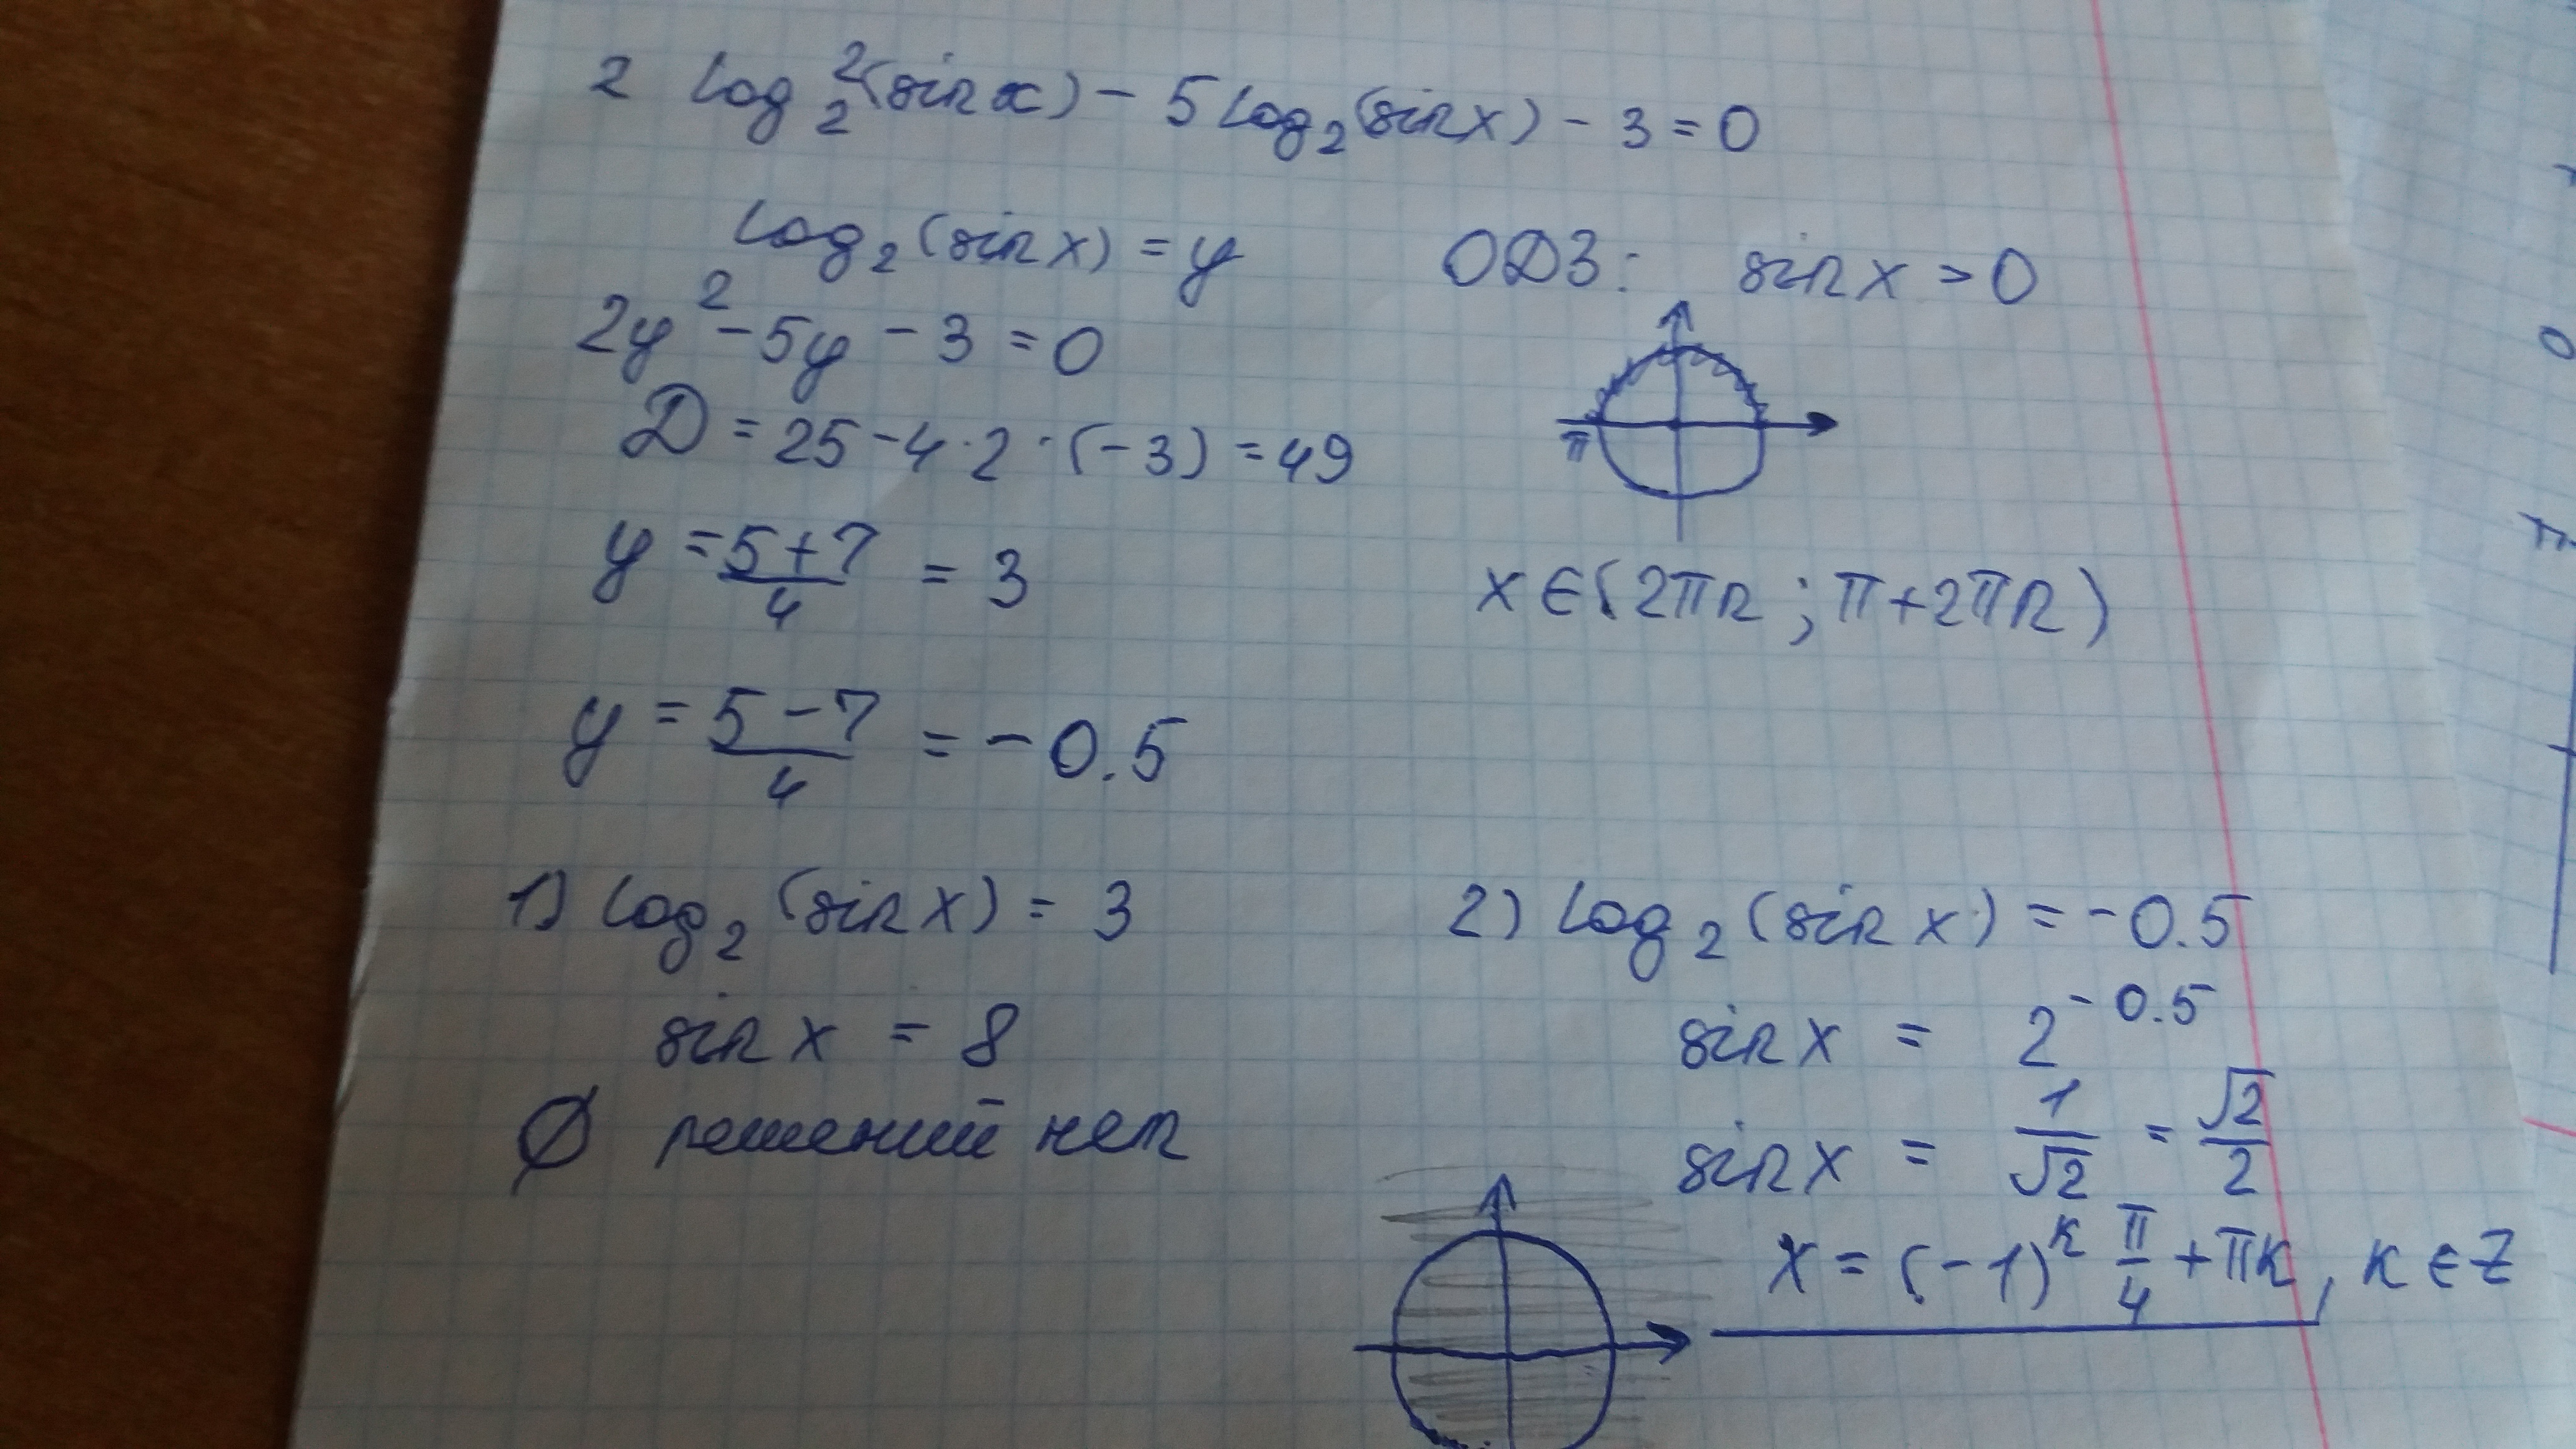 2 log₂²(sin x) - 5 log₂(sin x) - 3 = 0
log₂(sin x) = y
ОДЗ: sin x > 0
2y² - 5y - 3 = 0
D = 25 - 4 · 2 · (-3) = 49
π
y = (5+7)/4 = 3
x ∈ (2πn ; π + 2πn)
y = (5-7)/4 = -0.5
1) log₂(sin x) = 3
sin x = 8
∅ решений нет
2) log₂(sin x) = -0.5
sin x = 2^(-0.5)
sin x = 1/√2 = √2/2
x = (-1)^k π/4 + πk, k ∈ Z